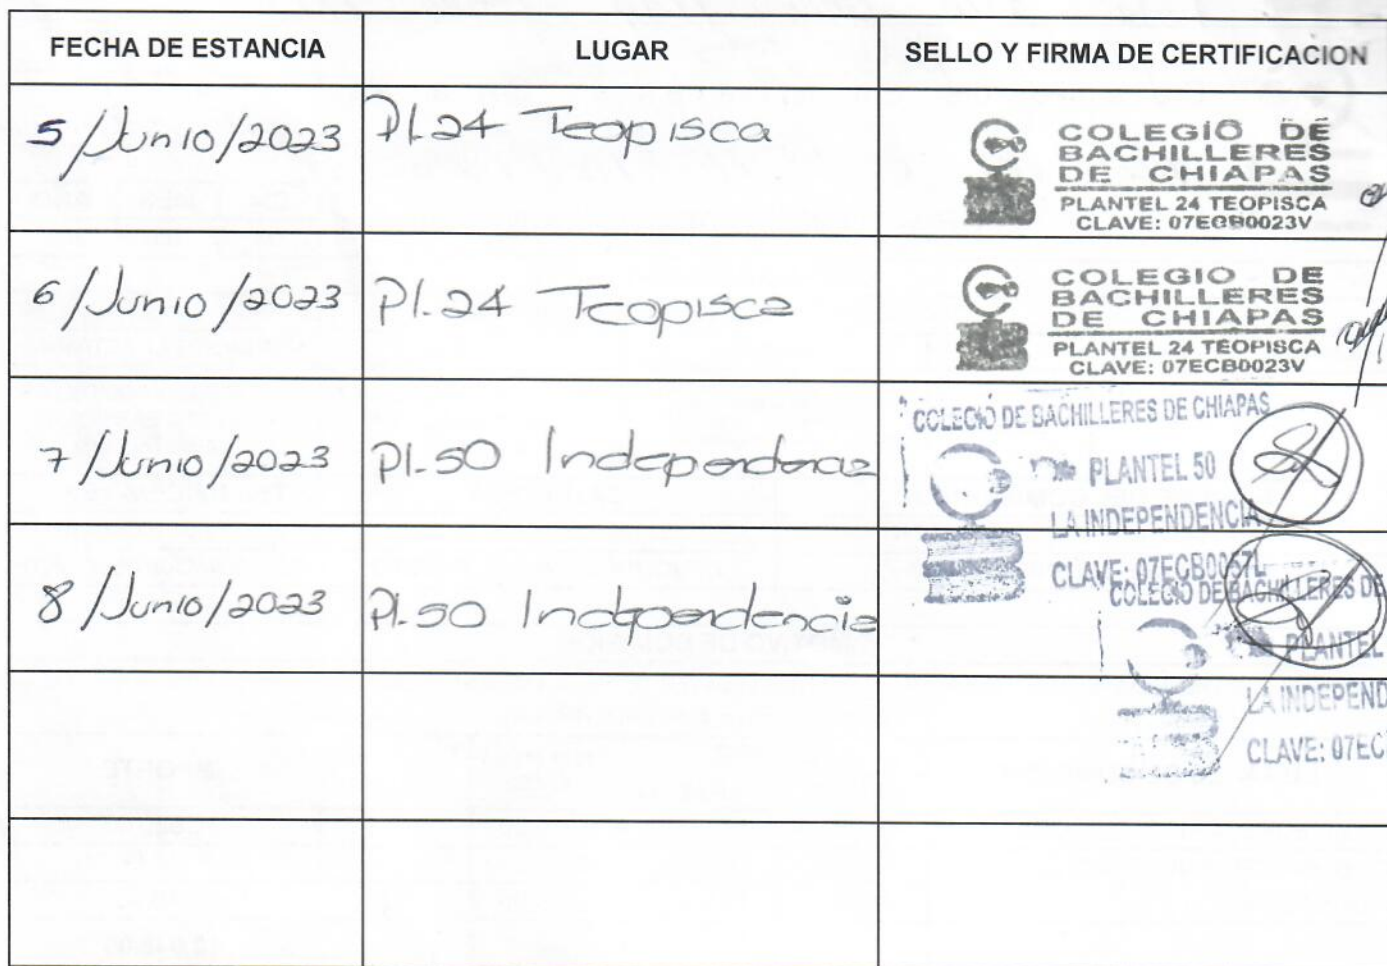 FECHA DE ESTANCIA LUGAR SELLO Y FIRMA DE CERTIFICACION
5/Junio/2023 Pl.24 Teopisca
COLEGIO DE
BACHILLERES
DE CHIAPAS
PLANTEL 24 TEOPISCA
CLAVE: 07ECB0023V
6/Junio/2023 Pl.24 Teopisca
COLEGIO DE
BACHILLERES
DE CHIAPAS
PLANTEL 24 TEOPISCA
CLAVE: 07ECB0023V
7/Junio/2023 Pl.50 Independencia
COLEGIO DE BACHILLERES DE CHIAPAS
PLANTEL 50
LA INDEPENDENCIA
CLAVE: 07ECB0057L
8/Junio/2023 Pl.50 Independencia
COLEGIO DE BACHILLERES DE
PLANTEL
LA INDEPEND
CLAVE: 07EC